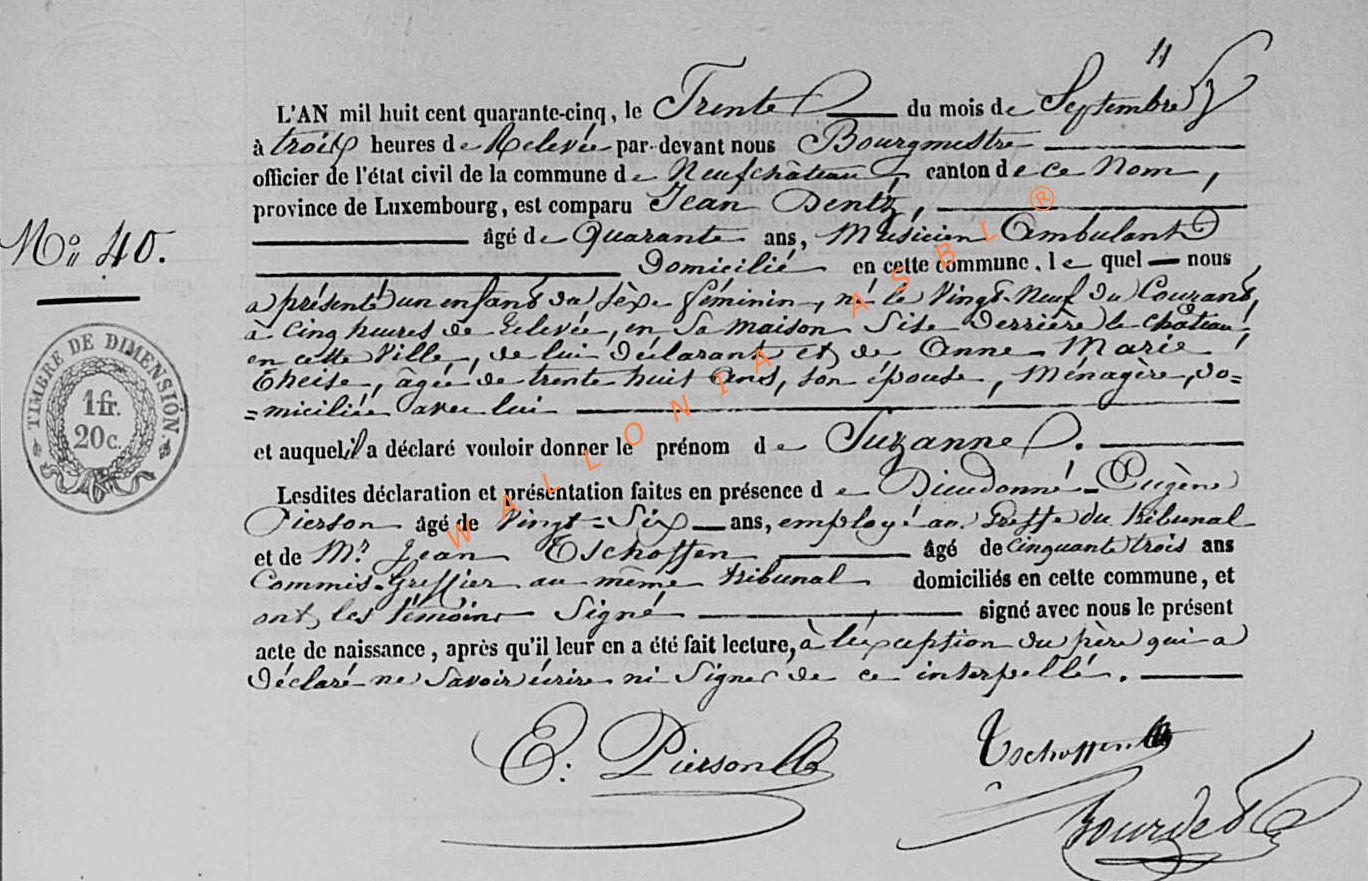 11
L'AN mil huit cent quarante-cinq, le Trente du mois de Septembre
à trois heures de Relevée par-devant nous Bourgmestre
officier de l'état civil de la commune de Neufchâteau, canton de ce Nom,
province de Luxembourg, est comparu Jean Dentz,
N° 40.
âgé de Quarante ans, Musicien Ambulant
Domicilié en cette commune, le quel nous
a présenté un enfant du sèxe féminin, né le Vingt-Neuf du Courant,
à Cinq heures de Relevée, en Sa maison Sise Derrière le château
en cette Ville, de lui déclarant et de Anne Marie
Theise, âgée de trente huit Ans, son épouse, Ménagère, do=
=miciliée avec lui
et auquel il a déclaré vouloir donner le prénom de Suzanne.
Lesdites déclaration et présentation faites en présence de Dieudonné-Eugène
Pierson âgé de Vingt=Six ans, employé au Greffe du tribunal
et de Mr. Jean Tschoffen âgé de cinquante trois ans
Commis-Greffier au même tribunal domiciliés en cette commune, et
ont les témoins Signé signé avec nous le présent
acte de naissance, après qu'il leur en a été fait lecture, à l'exception du père qui a
déclaré ne Savoir écrire ni Signer de ce interpellé.
TIMBRE DE DIMENSION
1 fr.
20 c.
E. Pierson
Tschoffen
Bourdet
WALLONIA ASBL ®